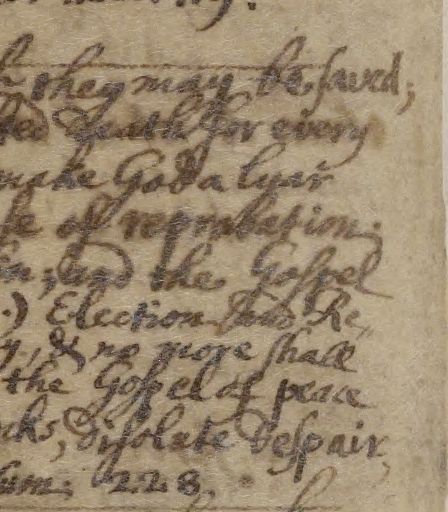 they may be saved;
ted death for every
make God a lyar
of reprobation;
; and the Gospel
.) Election and Re„
y, & no more shall
the Gospel of peace
cks, disolate Despair,
um: 228.